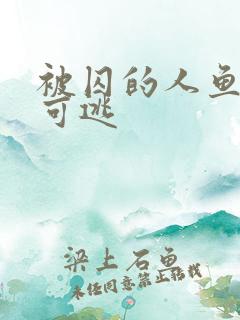 被囚的人鱼
可逃
梁上石鱼
未经同意禁止转载